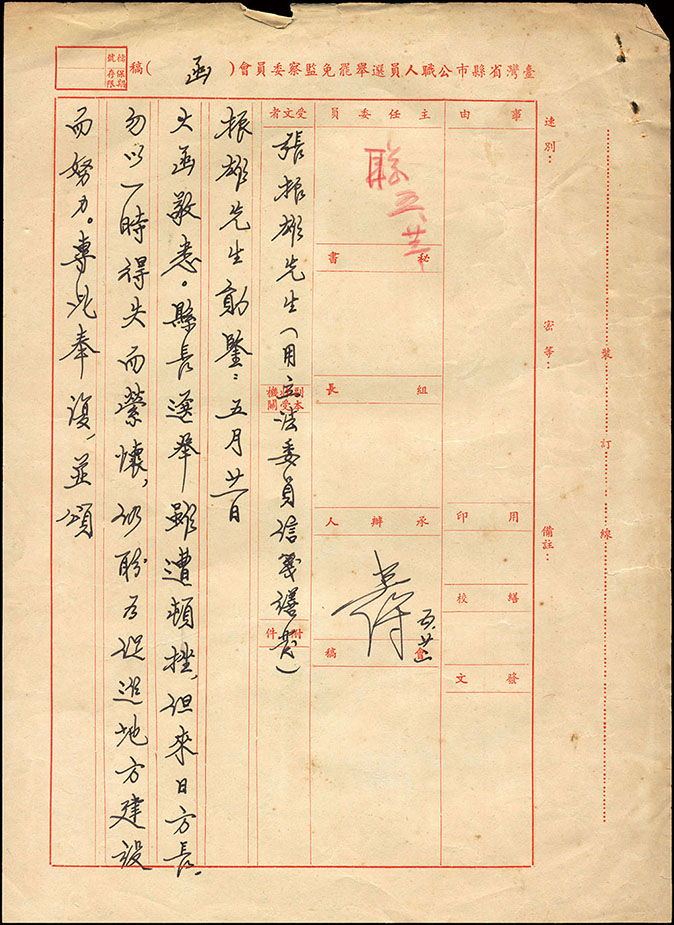 臺灣省縣市公職人員選舉罷免監察委員會（函）稿
檔號
保存期限
速別：
密等：
備註：
裝
訂
線
事由
用印
繕校
發文
主任委員
五、廿
秘書
組長
承辦人
五、廿
會稿
受文者
張振雄先生（用立法委員信箋繕發）
副本收受機關
附件
振雄先生勛鑒：五月廿一日
大函敬悉。縣長選舉雖遭頓挫，但來日方長，
勿以一時得失而縈懷，仍盼為促進地方建設
而努力。專此奉復，並頌